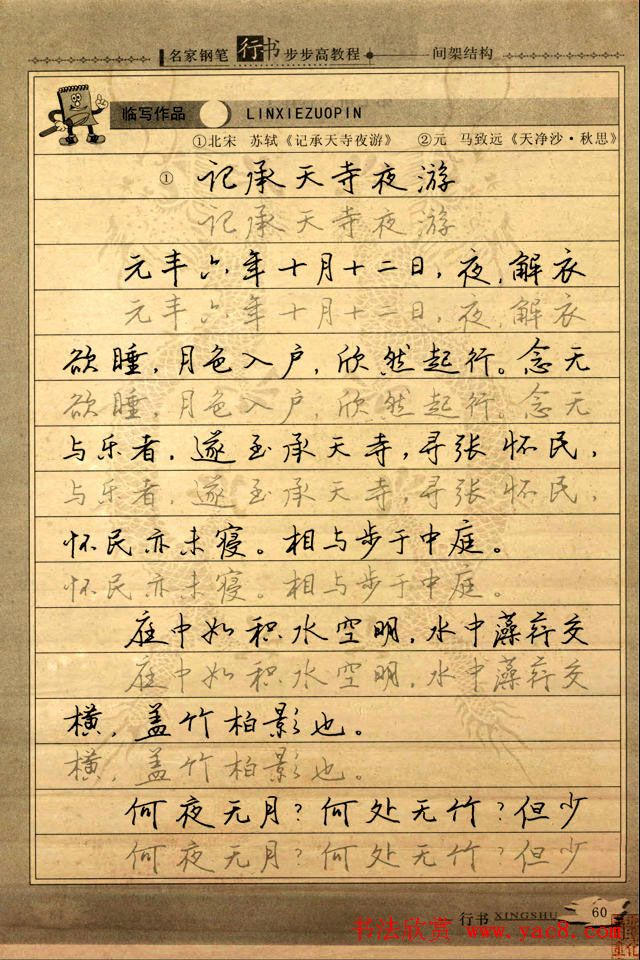 名家钢笔行书步步高教程 间架结构
临写作品 LINXIEZUOPIN
①北宋 苏轼《记承天寺夜游》 ②元 马致远《天净沙·秋思》
① 记承天寺夜游
记承天寺夜游
元丰六年十月十二日,夜,解衣
元丰六年十月十二日,夜,解衣
欲睡,月色入户,欣然起行。念无
欲睡,月色入户,欣然起行。念无
与乐者,遂至承天寺,寻张怀民,
与乐者,遂至承天寺,寻张怀民,
怀民亦未寝。相与步于中庭。
怀民亦未寝。相与步于中庭。
庭中如积水空明,水中藻荇交
庭中如积水空明,水中藻荇交
横,盖竹柏影也。
横,盖竹柏影也。
何夜无月?何处无竹?但少
何夜无月?何处无竹?但少
行书 XINGSHU 60
书法欣赏 www.yac8.com